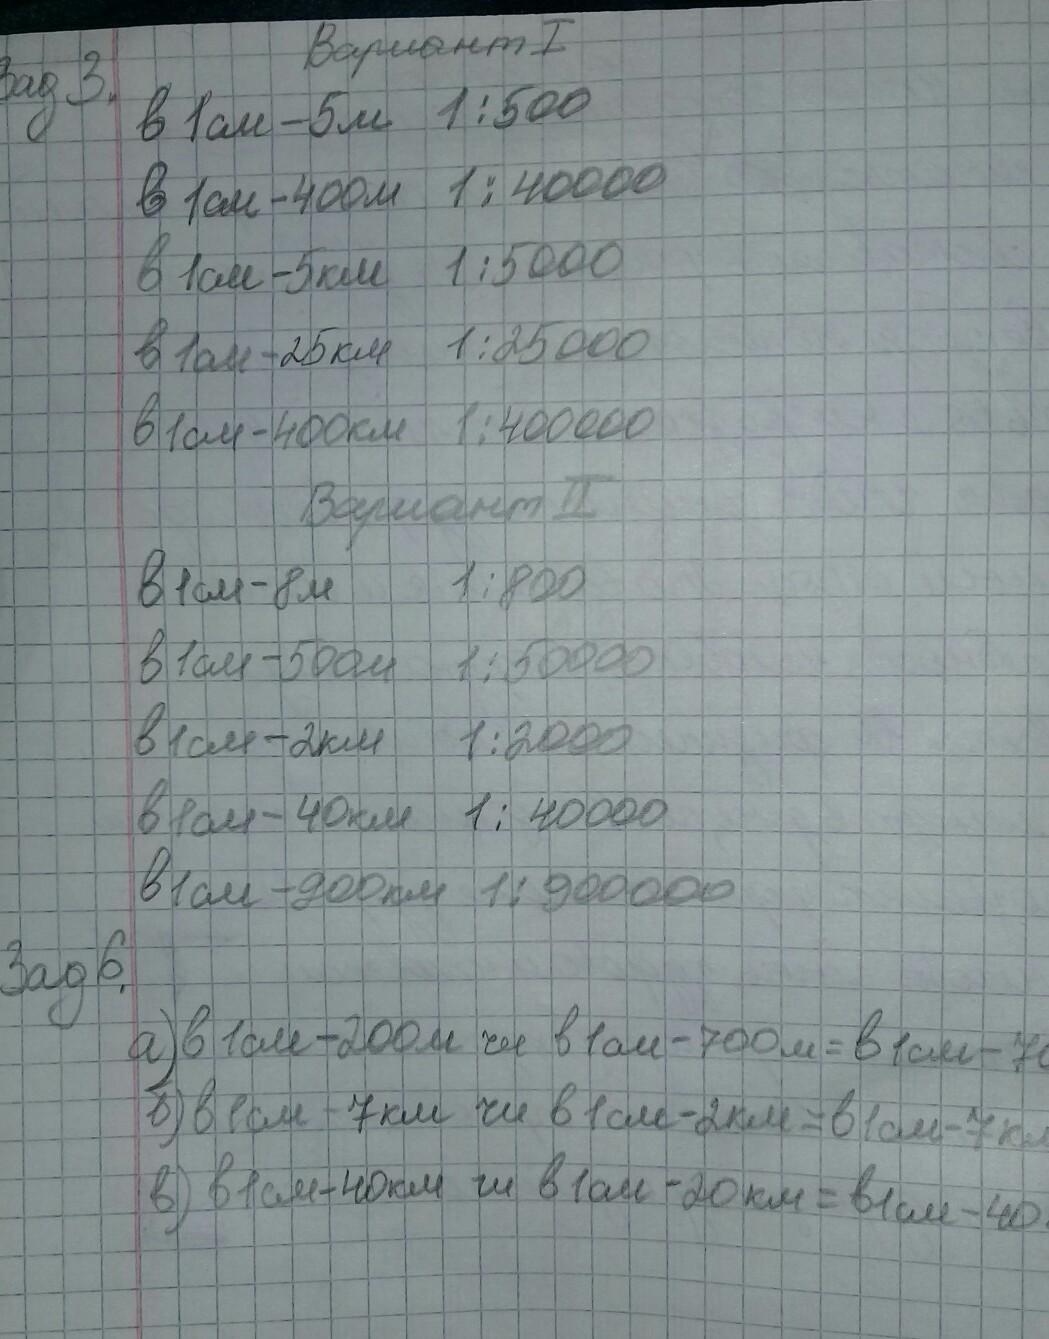 Вариант I
Зад 3.
в 1см - 5м 1:500
в 1см - 400м 1:40000
в 1см - 5км 1:5000
в 1см - 25км 1:25000
в 1см - 400км 1:400000
Вариант II
в 1см - 8м 1:800
в 1см - 500м 1:50000
в 1см - 2км 1:2000
в 1см - 40км 1:40000
в 1см - 900км 1:900000
Зад 6.
а) в 1см - 200м чи в 1см - 700м = в 1см - 70
б) в 1см - 7км чи в 1см - 2км = в 1см - 7км
в) в 1см - 40км чи в 1см - 20км = в 1см - 40